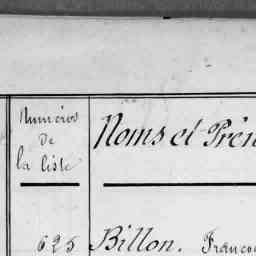 Numéros
de
la liste
Noms et Prén
625 Billon. Franço